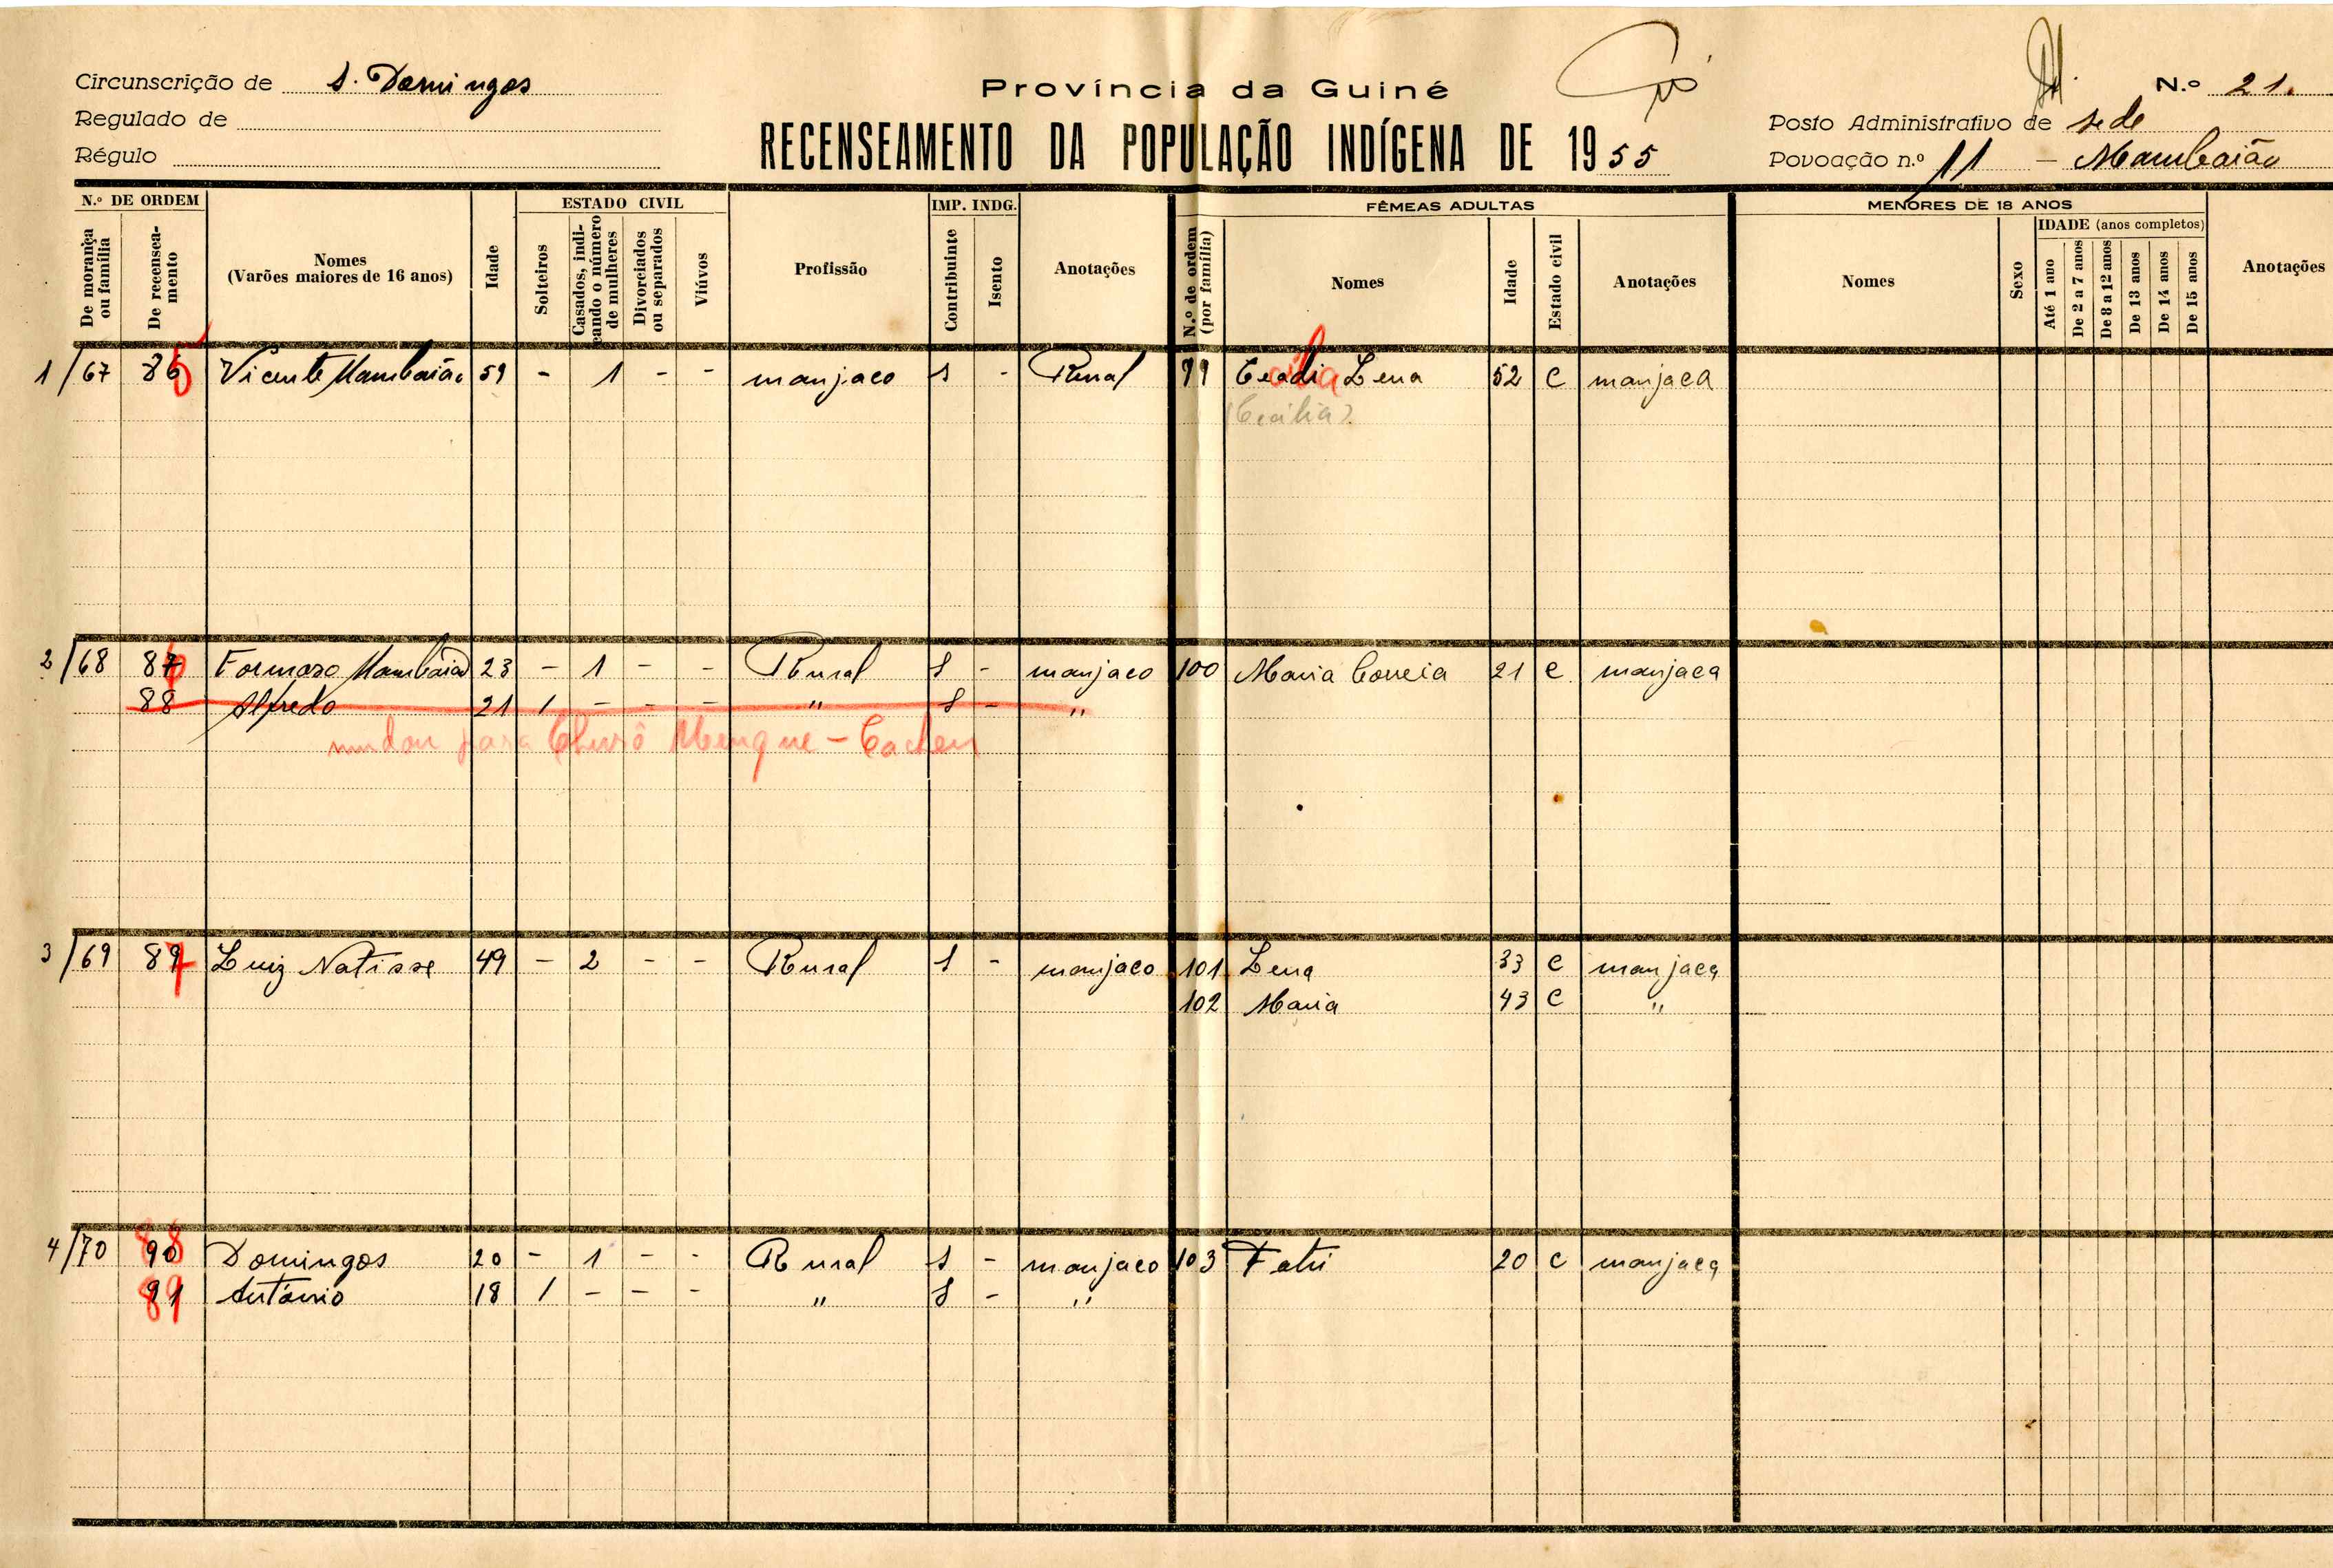 Circunscrição de S. Domingos
Regulado de
Régulo
Província da Guiné
RECENSEAMENTO DA POPULAÇÃO INDÍGENA DE 1955
N.º 21.
Posto Administrativo de sede
Povoação n.º 11 - Mambaião
N.º DE ORDEM
De morança ou família
De recenseamento
Nomes
(Varões maiores de 16 anos)
Idade
ESTADO CIVIL
Solteiros
Casados, indicando o número de mulheres
Divorciados ou separados
Viúvos
Profissão
IMP. INDG.
Contribuinte
Isento
Anotações
FÊMEAS ADULTAS
N.º de ordem (por família)
Nomes
Idade
Estado civil
Anotações
MENORES DE 18 ANOS
Nomes
Sexo
IDADE (anos completos)
Até 1 ano
De 2 a 7 anos
De 8 a 12 anos
De 13 anos
De 14 anos
De 15 anos
Anotações
1/67 86 5 Vicente Mambaião 59 - 1 - - manjaco 1 - Rural 99 Lena 52 C manjaca
(Cecília)
2/68 87 6 Formozo Mambaião 23 - 1 - - Rural 1 - manjaco 100 Maria Correia 21 C manjaca
88 Alfredo 21 1 - - - " 1 - "
mudou para Churô Menque - Cacheu
3/69 89 7 Luiz Natisse 49 - 2 - - Rural 1 - manjaco 101 Lena 33 C manjaca
102 Maria 43 C "
4/70 90 88 Domingos 20 - 1 - - Rural 1 - manjaco 103 Fatú 20 C manjaca
91 89 António 18 1 - - - " 1 - "